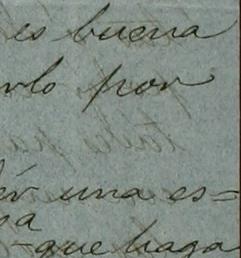 es buena
rlo por
er una es=
sa
-que haga